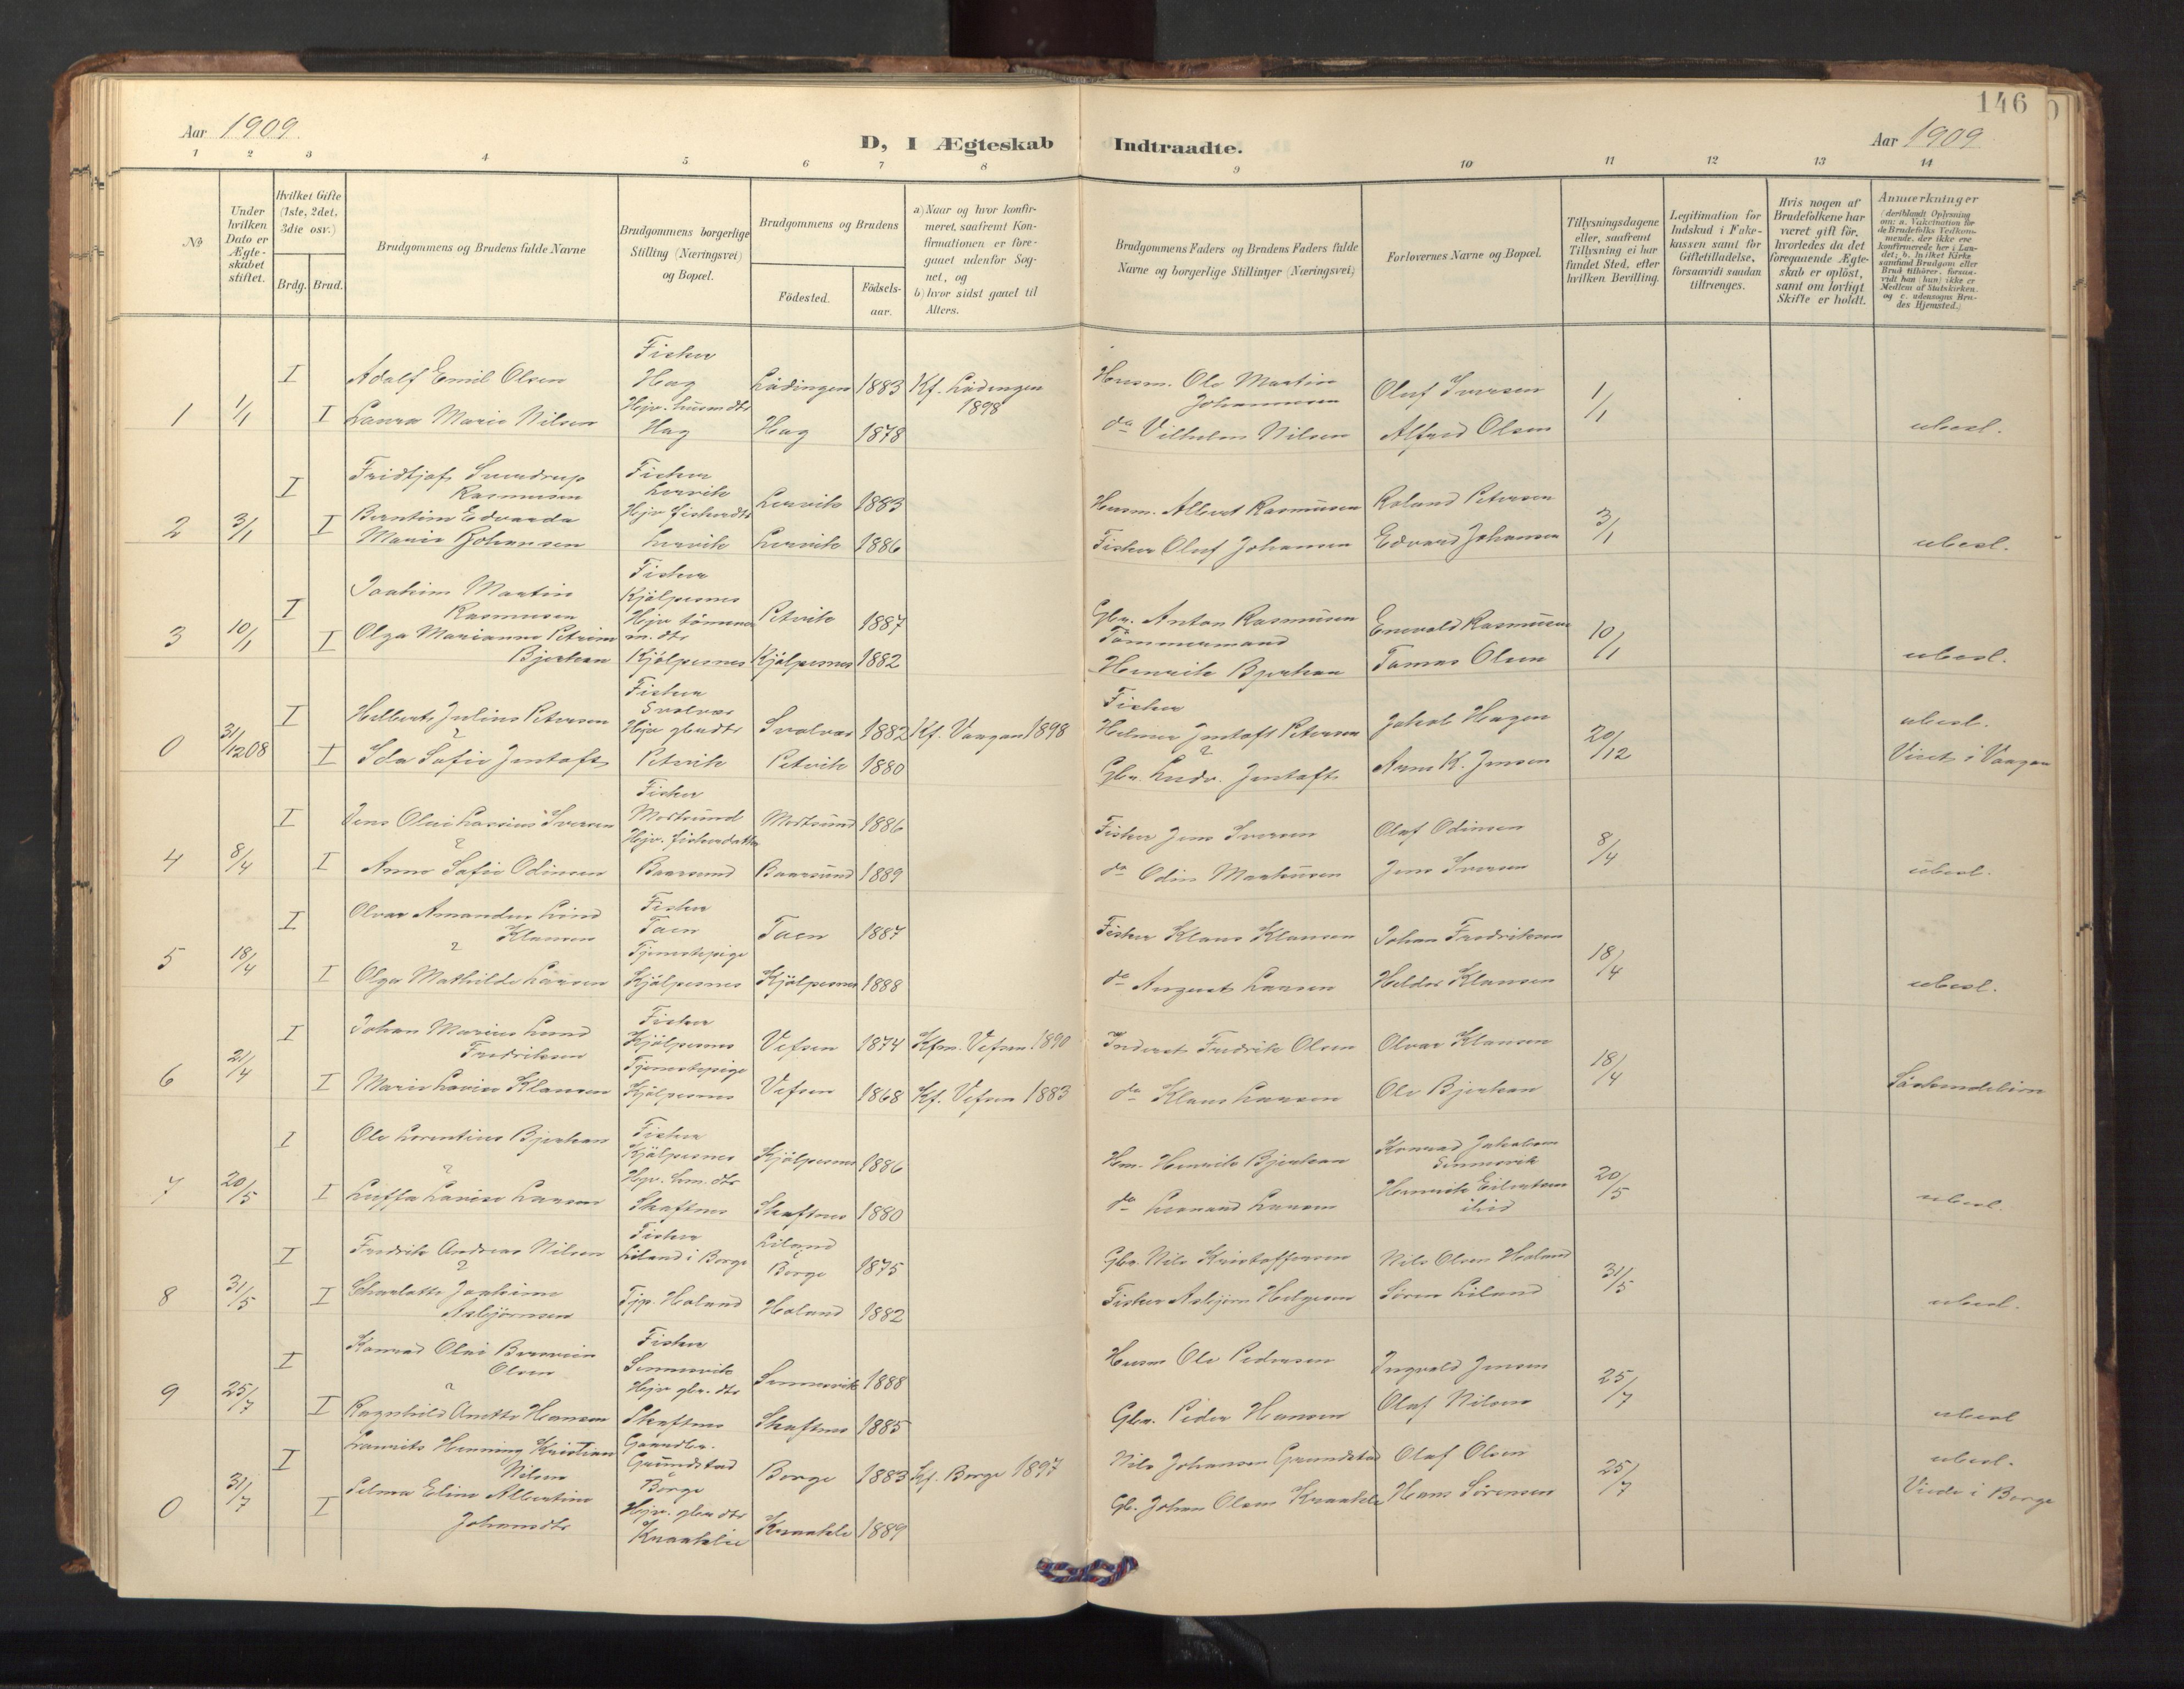 146
Aar 1909.
D, I Ægteskab Indtraadte.
Aar 1909
1 2 3 4 5 6 7 8 9 10 11 12 13 14
No
Under hvilken Dato er Ægteskabet stiftet.
Hvilket Gifte (1ste, 2det, 3die osv.)
Brdg. Brud.
Brudgommens og Brudens fulde Navne
Brudgommens borgerlige Stilling (Næringsvei) og Bopæl.
Brudgommens og Brudens
Födested.
Födsels-aar.
a) Naar og hvor konfirmeret, saafremt Konfirmationen er foregaaet udenfor Sognet, og
b) hvor sidst gaaet til Alters.
Brudgommens Faders og Brudens Faders fulde Navne og borgerlige Stillinger (Næringsvei)
Forlovernes Navne og Bopæl.
Tillysningsdagene eller, saafremt Tillysning ei har fundet Sted, efter hvilken Bevilling.
Legitimation for Indskud i Enkekassen samt for Giftetilladelse, forsaavidt saadan tiltrænges.
Hvis nogen af Brudefolkene har været gift för, hvorledes da det foregaaende Ægteskab er oplöst, samt om lovligt Skifte er holdt.
Anmærkninger
(deriblandt Oplysning om: a. Vaksination for de Brudefolks Vedkommende, der ikke ere konfirmerede her i Landet; b. hvilket Kirkesamfund Brudgom eller Brud tilhörer, forsaavidt han (hun) ikke er Medlem af Statskirken, og c. udensogns Brudes Hjemsted.)
1 1/1 I Adolf Emil Olsen Fisker Hag Lödingen 1883 Kf. Lödingen 1898 Husm. Ole Martin Johannesen Oluf Iversen 1/1
I Laura Marie Nilsen Hjv. husm dtr Hag Hag 1878 do Vilhelm Nilsen Alfred Olsen ubesl.
2 3/1 I Fridtjof Sverdrup Rasmussen Fisker Lervik Lervik 1883 Husm. Albert Rasmusen Roland Petersen 3/1
I Berntine Edvarda Marie Johansen Hjv fiskerdtr Lervik Lervik 1886 Fisker Oluf Johansen Edvard Johansen ubesl.
3 10/1 I Joakim Martin Rasmusen Fisker Kjölpesnes Petvik 1887 Gbr. Anton Rasmüsen Enevold Rasmüsen 10/1
I Olga Marianne Petrine Bjerkan Hjv tömmerm. dtr Kjölpesnes Kjölpesnes 1882 Tömmermand Henrik Bjerkan Tomas Olsen ubesl.
0 31/12 08 I Hilbert Julius Petersen Fisker Svolvær Svolvær 1882 Kf. Vaagan 1898 Fisker Helmer Jentoft Petersen Jakob Hagen 20/12 ubesl.
I Ida Sofie Jentoft Hjv gbrdtr Petvik Petvik 1880 Gbr. Ludv. Jentoft Arne K. Jensen Viet i Vaagan
4 8/4 I Jens Olai Lassius Iversen Fisker Mortsund Mortsund 1886 Fisker Jens Iversen Olaf Odinsen 8/4
I Anna Sofie Odinsen Hjv. fiskerdatter Baarsund Baarsünd 1889 do Odin Markusen Jens Iversen ubesl.
5 18/4 I Olvar Amandus Lind Klausen Fisker Taen Taen 1887 Fisker Klaus Klausen Johan Fredriksen 18/4
I Olga Mathilde Larsen Tjenestepige Kjölpesnes Kjölpesnes 1888 do August Larsen Heldor Klausen ubesl.
6 21/4 I Johan Marius Lund Fredriksen Fisker Kjölpesnes Vefsen 1874 Kfm. Vefsen 1890 Inderst Fredrik Olsen Olvar Klausen 18/4
I Marie Lovise Klausen Tjenestepige Kjölpesnes Vefsen 1868 Kf. Vefsen 1883 do Klaus Larsen Ole Bjerkan Söskendebörn
7 20/5 I Ole Lorentius Bjerkan Fisker Kjölpesnes Kjölpesnes 1886 Hm. Henrik Bjerkan Konrad Jakobsen Sennesvik 20/5
I Luffa Lovise Larsen Hjv. hm. dtr Skaftnes Skaftnes 1880 do Leonard Larsen Henrik Eilertsen ibid ubesl.
8 31/5 I Fredrik Andreas Nilsen Fisker Liland i Borge Liland Borge 1875 Gbr. Nils Kristoffersen Nils Olsen Holand 31/5
I Charlotte Joakime Asbjörnsen Tjp. Holand Holand 1882 Fisker Asbjörn Helgesen Sören Liland ubesl.
9 25/7 I Konrad Olai Olsen Fisker Sennesvik Sennesvik 1888 Husm Ole Pedersen Ingvald Jensen 25/7
I Ragnhild Anette Hansen Hjv gbr. dtr Skaftnes Skaftnes 1885 Gbr. Peder Hansen Olaf Nilsen ubesl
0 31/7 I Laurits Henning Kristian Nilsen Gaardbr. Grundstad Borge Borge 1883 Kf. Borge 1897 Nils Johansen Grundstad Olaf Olsen 25/7 ubesl.
I Selma Eline Albertine Johansdtr Hjv. gbr dtr Knaatelie 1889 Gb. Johan Olsen Hans Sörensen Viede i Borge